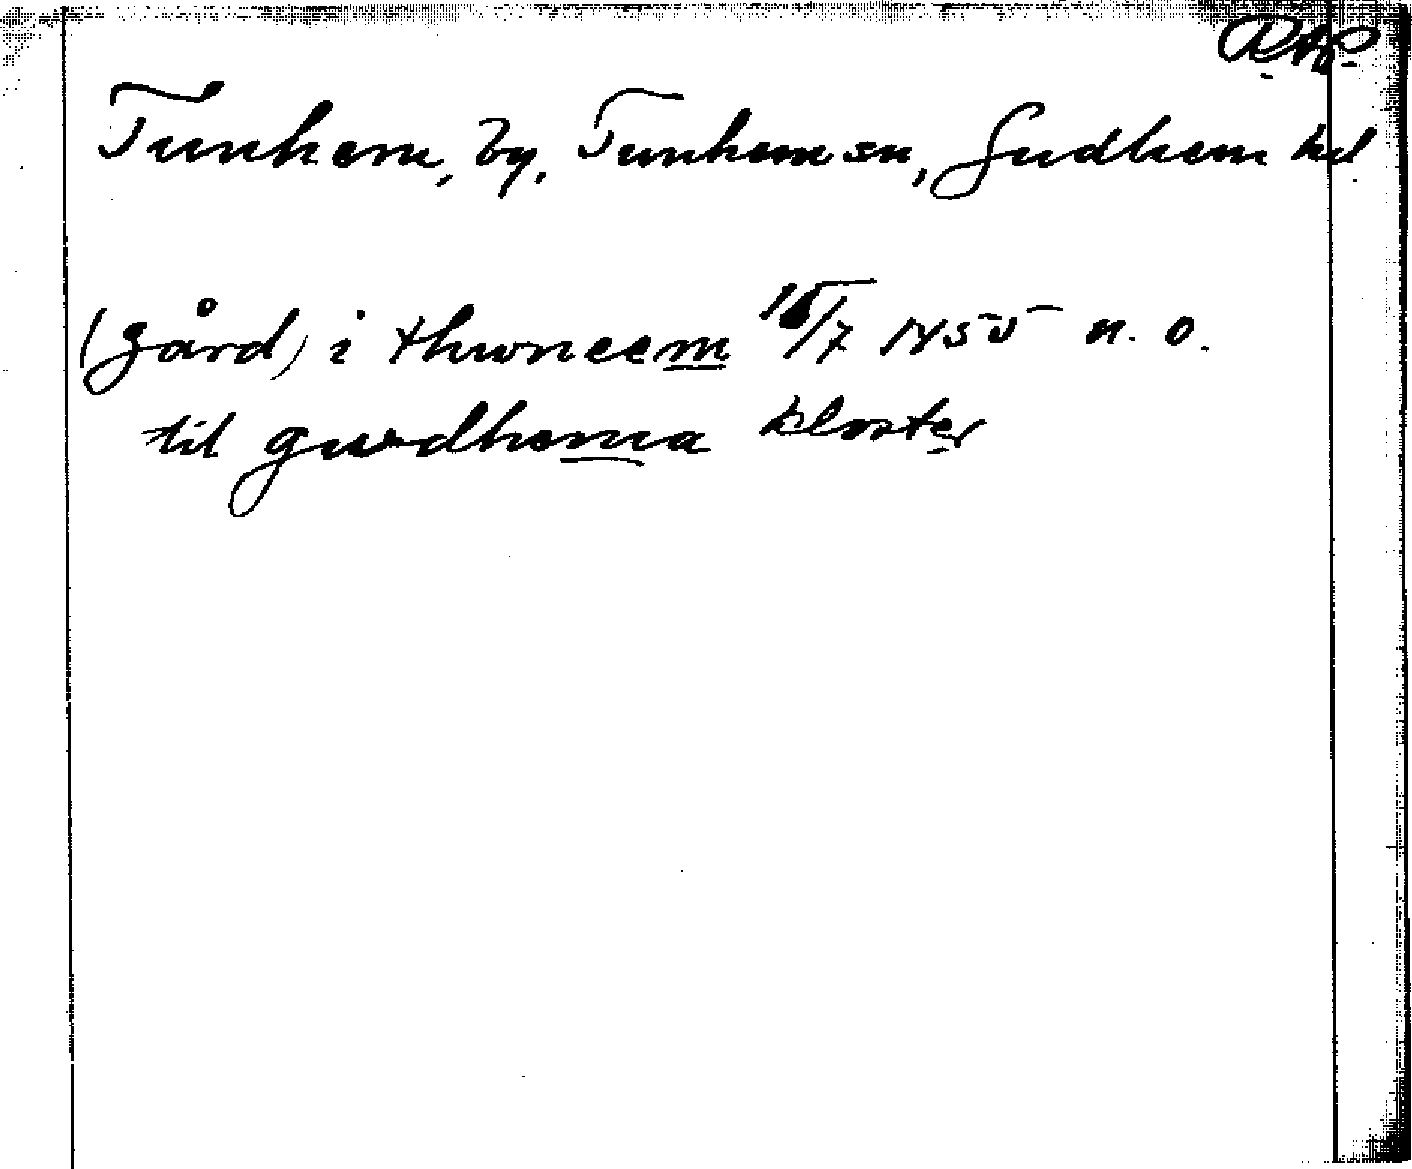 RAP
Tunhem, by, Tunhem sn, Gudhem hd
(gård) i thwneem 15/7 1455 n. o.
til gwdhema kloster